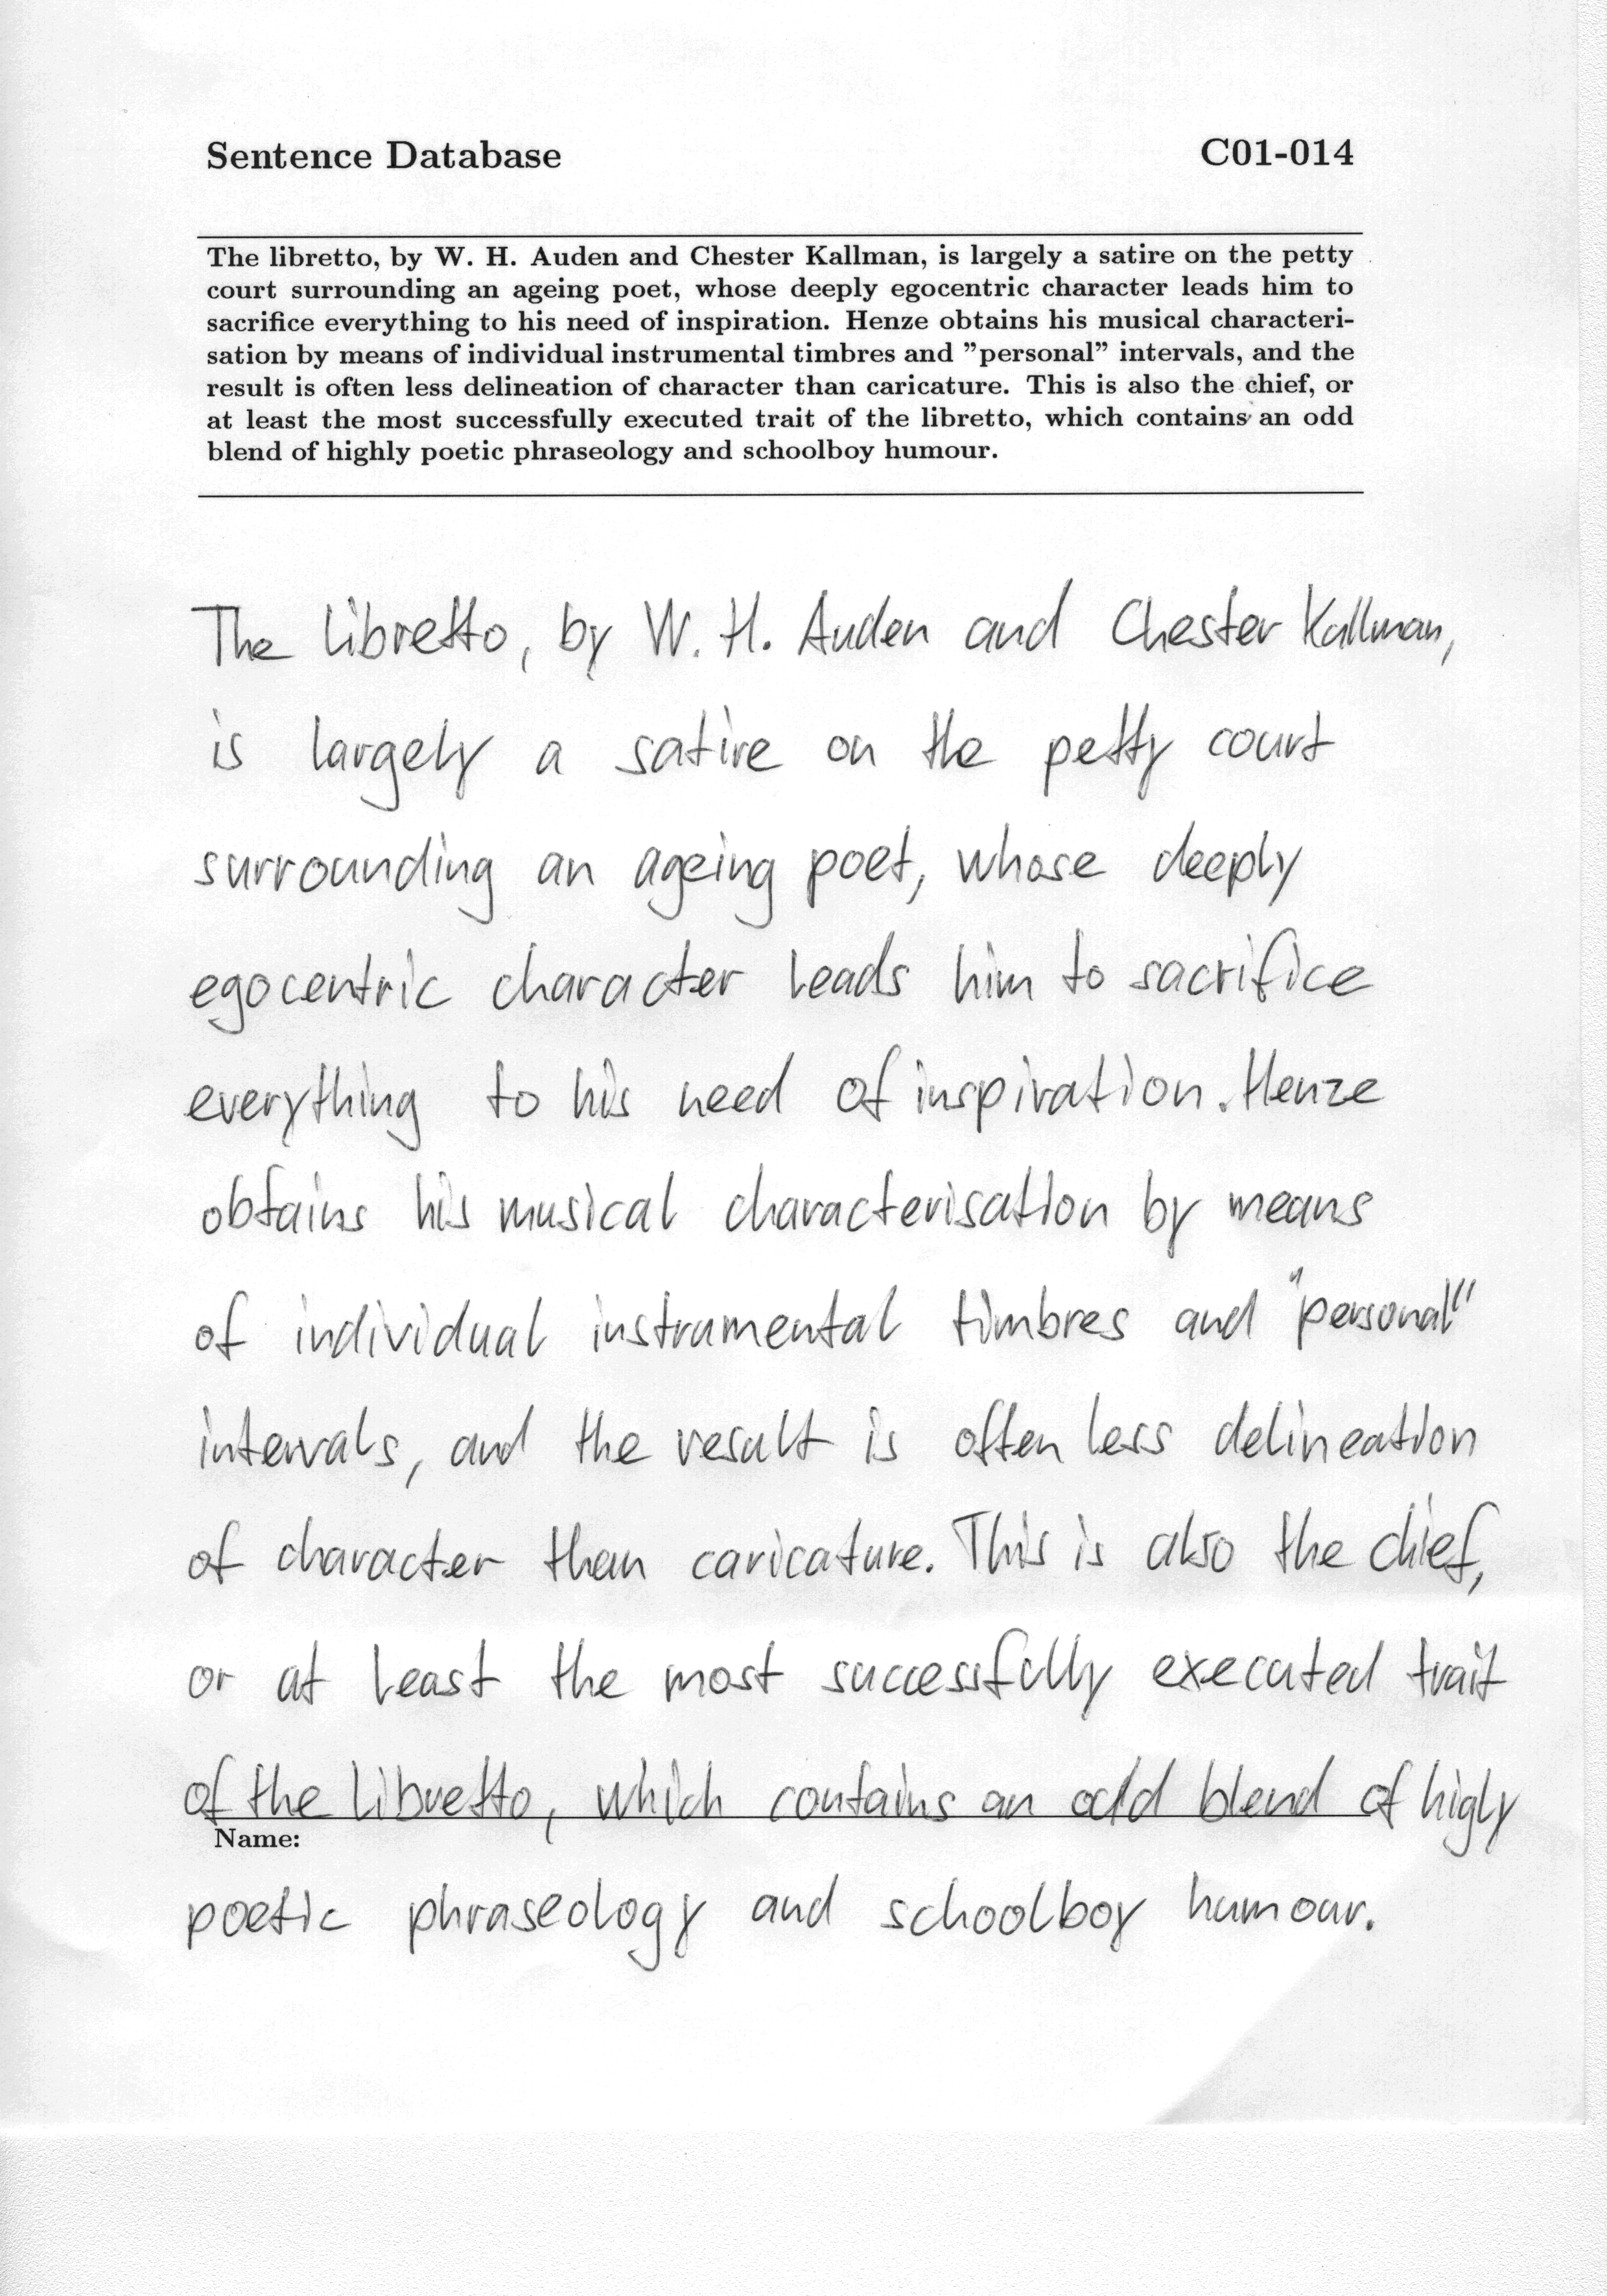 Sentence Database C01-014
The libretto, by W. H. Auden and Chester Kallman, is largely a satire on the petty
court surrounding an ageing poet, whose deeply egocentric character leads him to
sacrifice everything to his need of inspiration. Henze obtains his musical characteri-
sation by means of individual instrumental timbres and ”personal” intervals, and the
result is often less delineation of character than caricature. This is also the chief, or
at least the most successfully executed trait of the libretto, which contains an odd
blend of highly poetic phraseology and schoolboy humour.
The libretto, by W. H. Auden and Chester Kallman,
is largely a satire on the petty court
surrounding an ageing poet, whose deeply
egocentric character leads him to sacrifice
everything to his need of inspiration. Henze
obtains his musical characterisation by means
of individual instrumental timbres and "personal"
intervals, and the result is often less delineation
of character than caricature. This is also the chief,
or at least the most successfully executed trait
of the libretto, which contains an odd blend of higly
Name:
poetic phraseology and schoolboy humour.